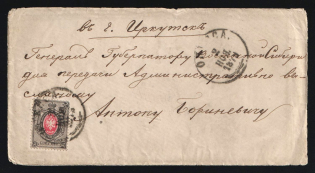 въ г. Иркутскъ
Генералъ Губернатору Сибири
для передачи Административно вы-
сланному
Антону Гориневичу